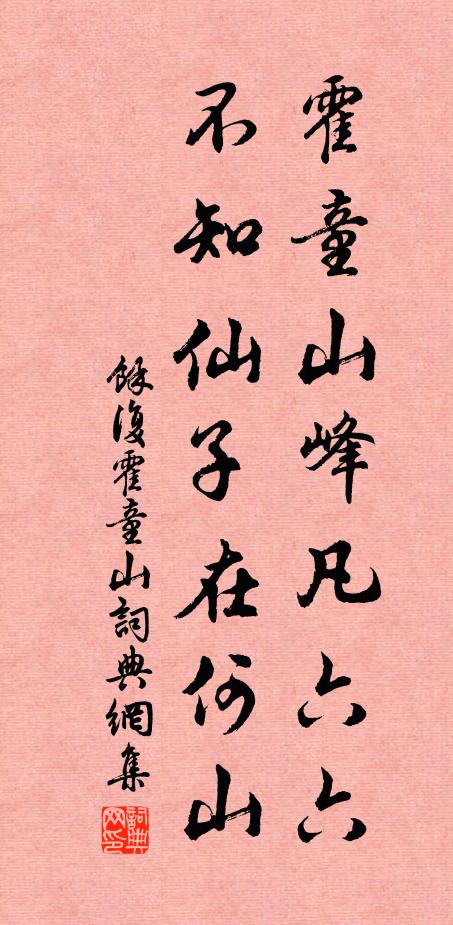 霍童山峰凡六六
不知仙子在何山
餘復霍童山詞典網集
詞典网印